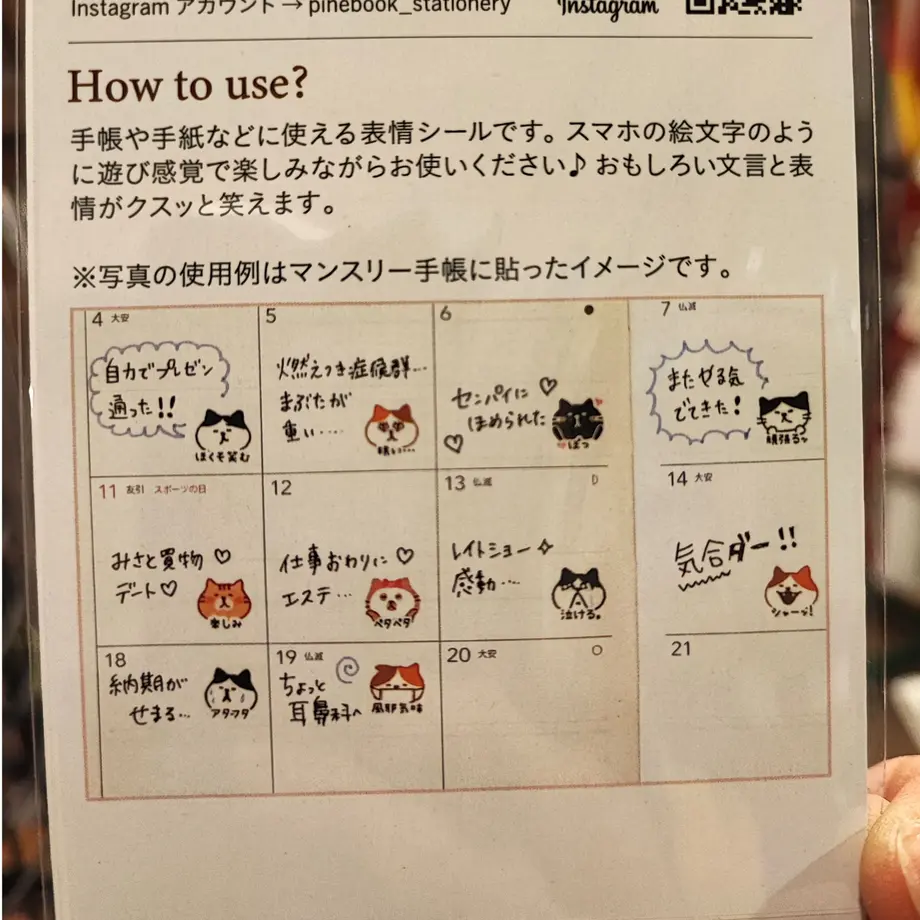 Instagram アカウント → pinebook_stationery
Instagram
How to use?
手帳や手紙などに使える表情シールです。スマホの絵文字のよう
に遊び感覚で楽しみながらお使いください♪ おもしろい文言と表
情がクスッと笑えます。
※写真の使用例はマンスリー手帳に貼ったイメージです。
4 大安
自力でプレゼン
通った!!
ほくそ笑む
5
燃えつき症候群…
まぶたが
重い‥‥
眠い…
6
センパイに♡
ほめられた
♡
ぽっ
7 仏滅
またやる気
でてきた!
頑張るッ
11 友引 スポーツの日
みさと買物♡
デート♡
楽しみ
12
仕事おわりに♡
エステ…
ペタペタ
13 仏滅
レイトショー
感動…
泣ける。
14 大安
気合ダー!!
シャーッ!
18
納期が
せまる…
アタフタ
19 仏滅
ちょっと
耳鼻科へ
風邪気味
20 大安
21